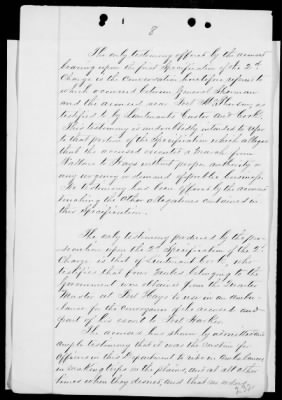 8
The only testimony offered by the accused
bearing upon the first Specification of the 2d
Charge is the conversation heretofore referred to
which occurred between General Sherman
and the accused near Fort McPherson, as
testified to by Lieutenants Custer and Cook.
This testimony is undoubtedly intended to apply
to that portion of the Specification which alleges
that the accused executed a march from
Wallace to Hays without proper authority or
any urgency or demand of public business.
No testimony has been offered by the accused
touching the other allegations contained in
this Specification.
The only testimony produced by the pro-
secution upon the 2d Specification of the 2d
Charge is that of Lieutenant Cook, who
testifies that four mules belonging to the
Government were obtained from the Quarter
Master at Fort Hays to use in an ambu-
lance for the conveyance of the accused and
part of his escort to Fort Harker.
The accused has shown by
ample testimony that it was the custom for
officers in this Department to ride in Ambulances
in making trips on the plains, and at all other
times when they desired, and that an order
232